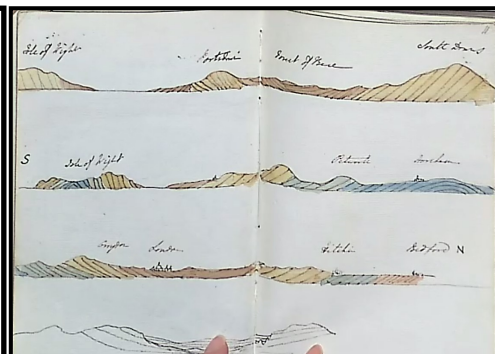 Isle of Wight Portsdown Forest of Bere South Downs
S Isle of Wight Petworth Horsham
Croydon London Hitchin Bedford N